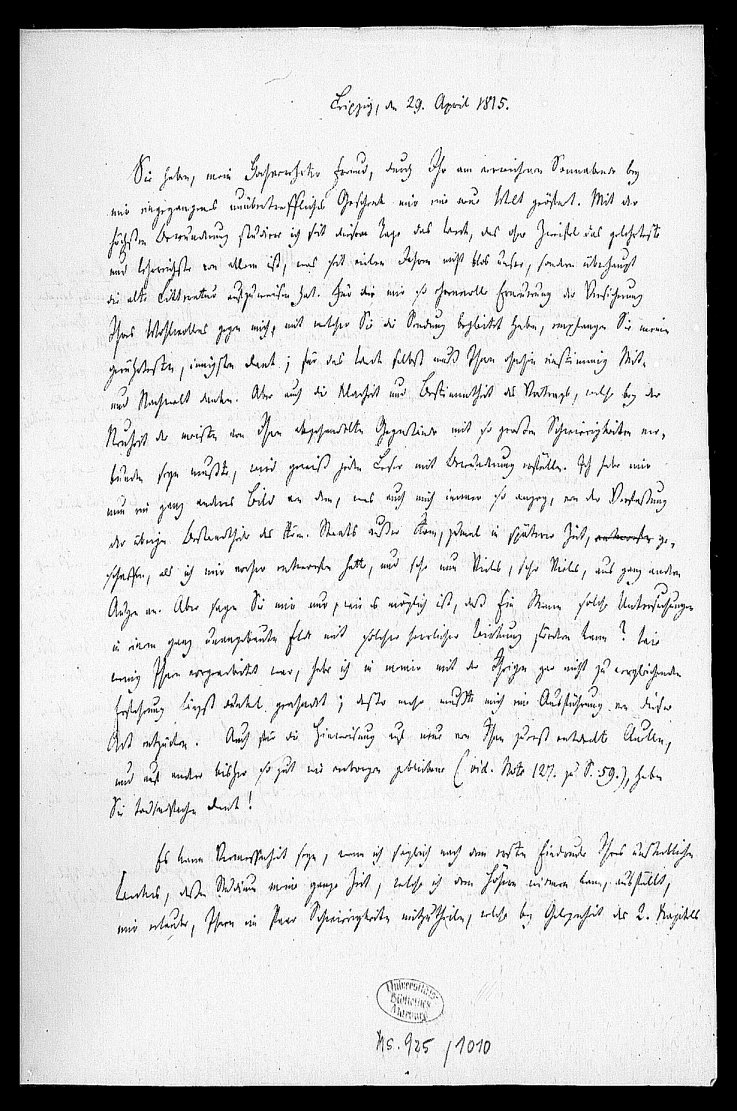 Leipzig, den 29. April 1815.
Sie haben, mein Hochverehrter Freund, durch Ihr am Sonnabend bey
mir eingegangenes unübertreffliches Geschenk mir eine neue Welt geöffnet. Mit der
höchsten Bewunderung studiere ich seit diesem Tage das Werk, das ohne Zweifel das gelehrteste
und lehrreichste von allem ist, was seit vielen Jahren nicht blos unsere, sondern überhaupt
die alte Litteratur aufzuweisen hat. Für die mir so ehrenvolle Erneuerung der Versicherung
Ihres Wohlwollens gegen mich, mit welcher Sie die Sendung begleitet haben, empfangen Sie meinen
gerührtesten, innigsten Dank; für das Werk selbst muß Ihnen ohnehin einstimmig Mit-
und Nachwelt danken. Aber auch die Klarheit und Bestimmtheit des Vortrags, welche bey der
Neuheit der meisten von Ihnen abgehandelten Gegenstände mit so großen Schwierigkeiten ver-
bunden seyn mußte, wird gewiß jeden Leser mit Bewunderung erfüllen. Ich habe mir
nun ein ganz anderes Bild von dem, was auch mich immer so anzog, von der Verfassung
der übrigen Bestandtheile des Röm. Staats außer Rom, zumal in späterer Zeit, entworfen ge-
schaffen, als ich mir vorher entworfen hatte, und sehe nun Vieles, sehr Vieles, aus ganz andern
Augen an. Aber sagen Sie mir nur, wie es möglich ist, daß Ein Mann solche Untersuchungen
in einem ganz unangebauten Feld mit solcher herrlicher Wirkung fördern kann? Wie
wenig Ihnen vorgearbeitet war, habe ich in meiner mit der Ihrigen gar nicht zu vergleichenden
Erfahrung längst dunkel geahndet; desto mehr mußte mich eine Ausführung von dieser
Art entzücken. Auch für die Hinweisung auf neue von Ihnen zuerst entdeckte Quellen,
und auf andere bisher so gut wie verborgen gebliebene (vid. Note 127. zu S. 59.), haben
Sie tausendfachen Dank!
Es kann Vermessenheit seyn, wenn ich sogleich nach dem ersten Eindrucke Ihres unsterblichen
Werkes, dessen Studium meine ganze Zeit, welche ich dem Hören widmen kann, ausfüllt,
mir erlaube, Ihnen ein Paar Schwierigkeiten mitzutheilen, welche bey Gelegenheit des 2. Kapitels
Universitäts-
Bibliothek
Marburg
Ms. 925/1010